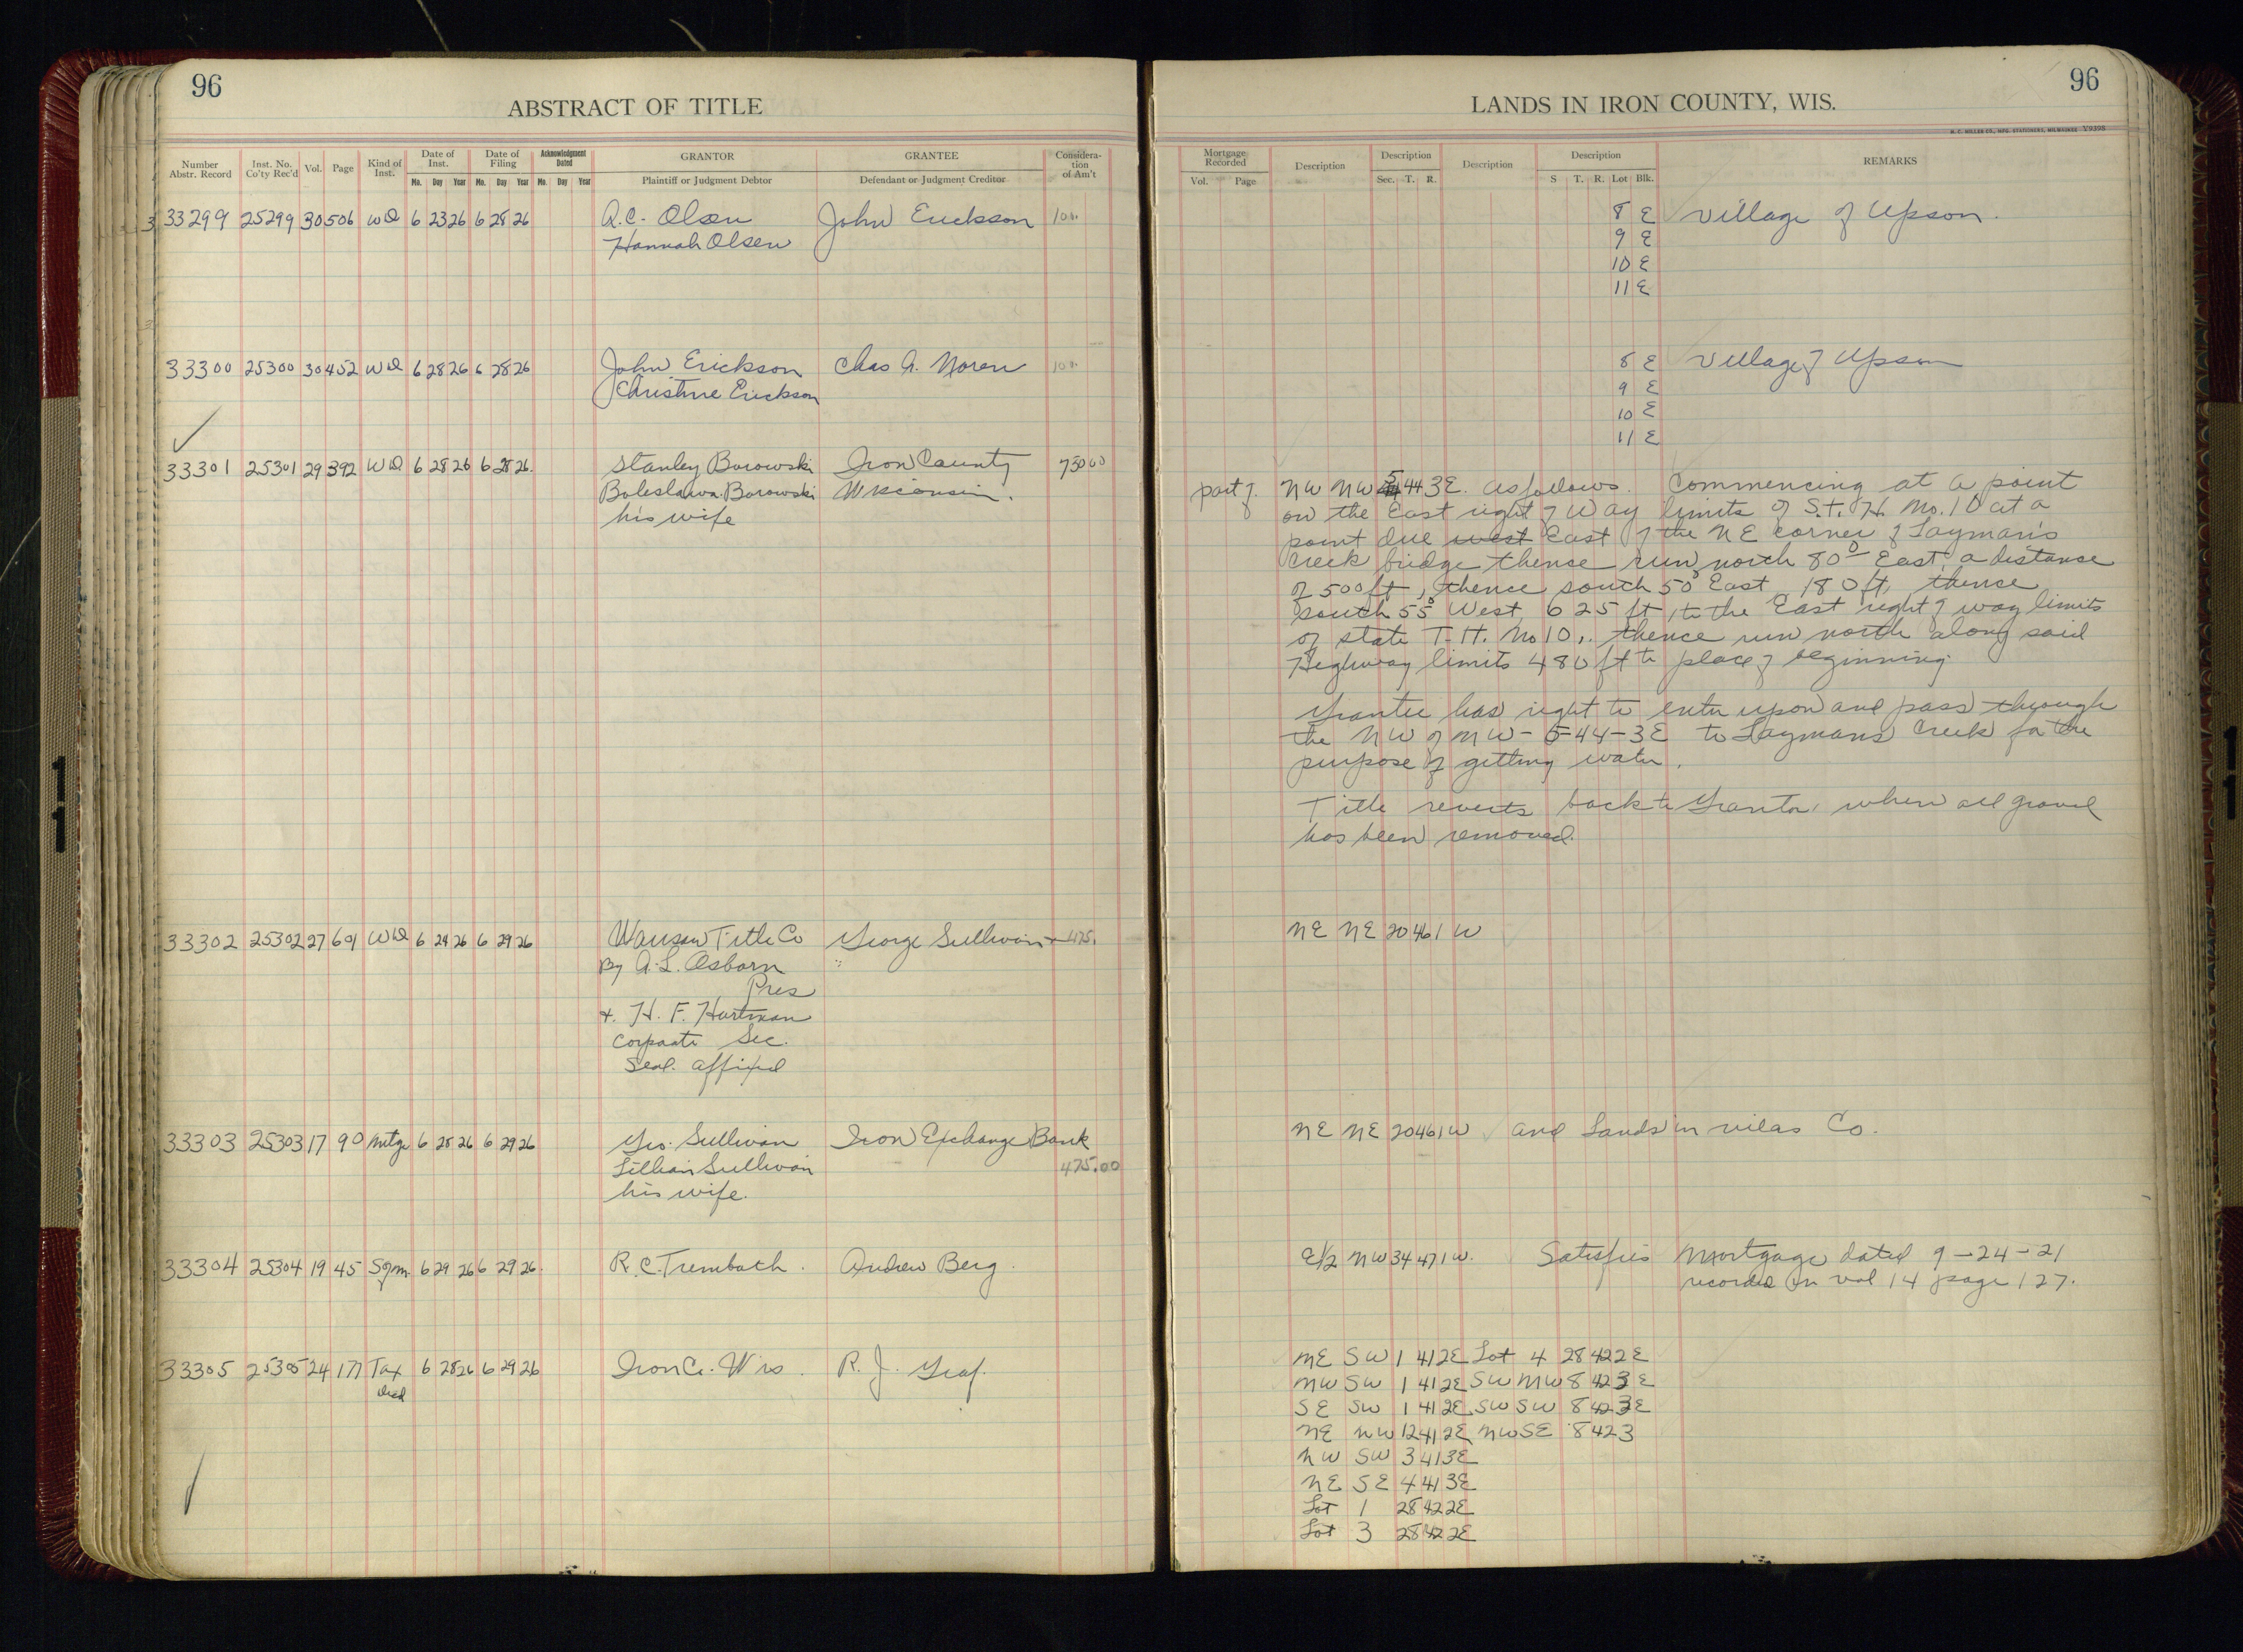 96
ABSTRACT OF TITLE
Number Abstr. Record Inst. No. Co'ty Rec'd Vol. Page Kind of Inst. Date of Inst. Mo. Day Year Date of Filing Mo. Day Year Acknowledgment Dated Mo. Day Year GRANTOR Plaintiff or Judgment Debtor GRANTEE Defendant or Judgment Creditor Considera-tion of Am't
33299 25299 30 506 WD 6 23 26 6 28 26 A.C. Olsen John Erickson 100
Hannah Olsen
33300 25300 30 452 WD 6 28 26 6 28 26 John Erickson Chas A. Noren 100
Christine Erickson
33301 25301 29 392 WD 6 28 26 6 28 26. Stanley Borowski Iron County 750 00
Boleslawa Borowski Wisconsin.
his wife
33302 25302 27 601 WD 6 24 26 6 29 26 Wausau Title Co George Sullivan 475.
By A.L. Osborn
Pres
+ H. F. Hartman
Corporate Sec.
Seal affixed
33303 25303 17 90 Mtge 6 28 26 6 29 26 Geo. Sullivan Iron Exchange Bank
Lillian Sullivan 475.00
his wife.
33304 25304 19 45 Sgm 6 29 26 6 29 26. R.C. Trembath. Andrew Berg.
33305 25305 24 177 Tax 6 28 26 6 29 26 Iron Co. Wis. R. J. Graf.
Deed
96
LANDS IN IRON COUNTY, WIS.
H. C. MILLER CO., MFG. STATIONERS, MILWAUKEE V9398
Mortgage Recorded Vol. Page Description Description Sec. T. R. Description Description S T. R. Lot Blk. REMARKS
8 E Village of Upson.
9 E
10 E
11 E
8 E Village of Upson
9 E
10 E
11 E
part of NW NW 5 44 3E. as follows. Commencing at a point
on the East right of Way limits of S.T.H. No. 10 at a
point due west East of the NE corner of Layman's
Creek bridge thense run north 80° East, a distance
of 500 ft, thence south 50° East 180 ft, thense
south 55° West 625 ft, to the East right of way limits
of state T.H. No 10,. thence run north along said
Highway limits 480 ft to place of beginning.
Grantee has right to enter upon and pass through
the NW of NW - 5-44-3E to Laymans Creek for the
purpose of getting water.
Title reverts back to Grantor, when all gravel
has been removed.
NE NE 20 46 1 W
NE NE 20 46 1W and Lands in vilas Co.
E1/2 NW 34 47 1W. Satisfies Mortgage dated 9-24-21
recorded in vol 14 page 127.
NE SW 1 41 2E Lot 4 28 42 2E
NW SW 1 41 2E SW NW 8 42 3E
SE SW 1 41 2E SW SW 8 42 3E
NE NW 12 41 2E NW SE 8 42 3
NW SW 3 41 3E
NE SE 4 41 3E
Lot 1 28 42 2E
Lot 3 28 42 2E